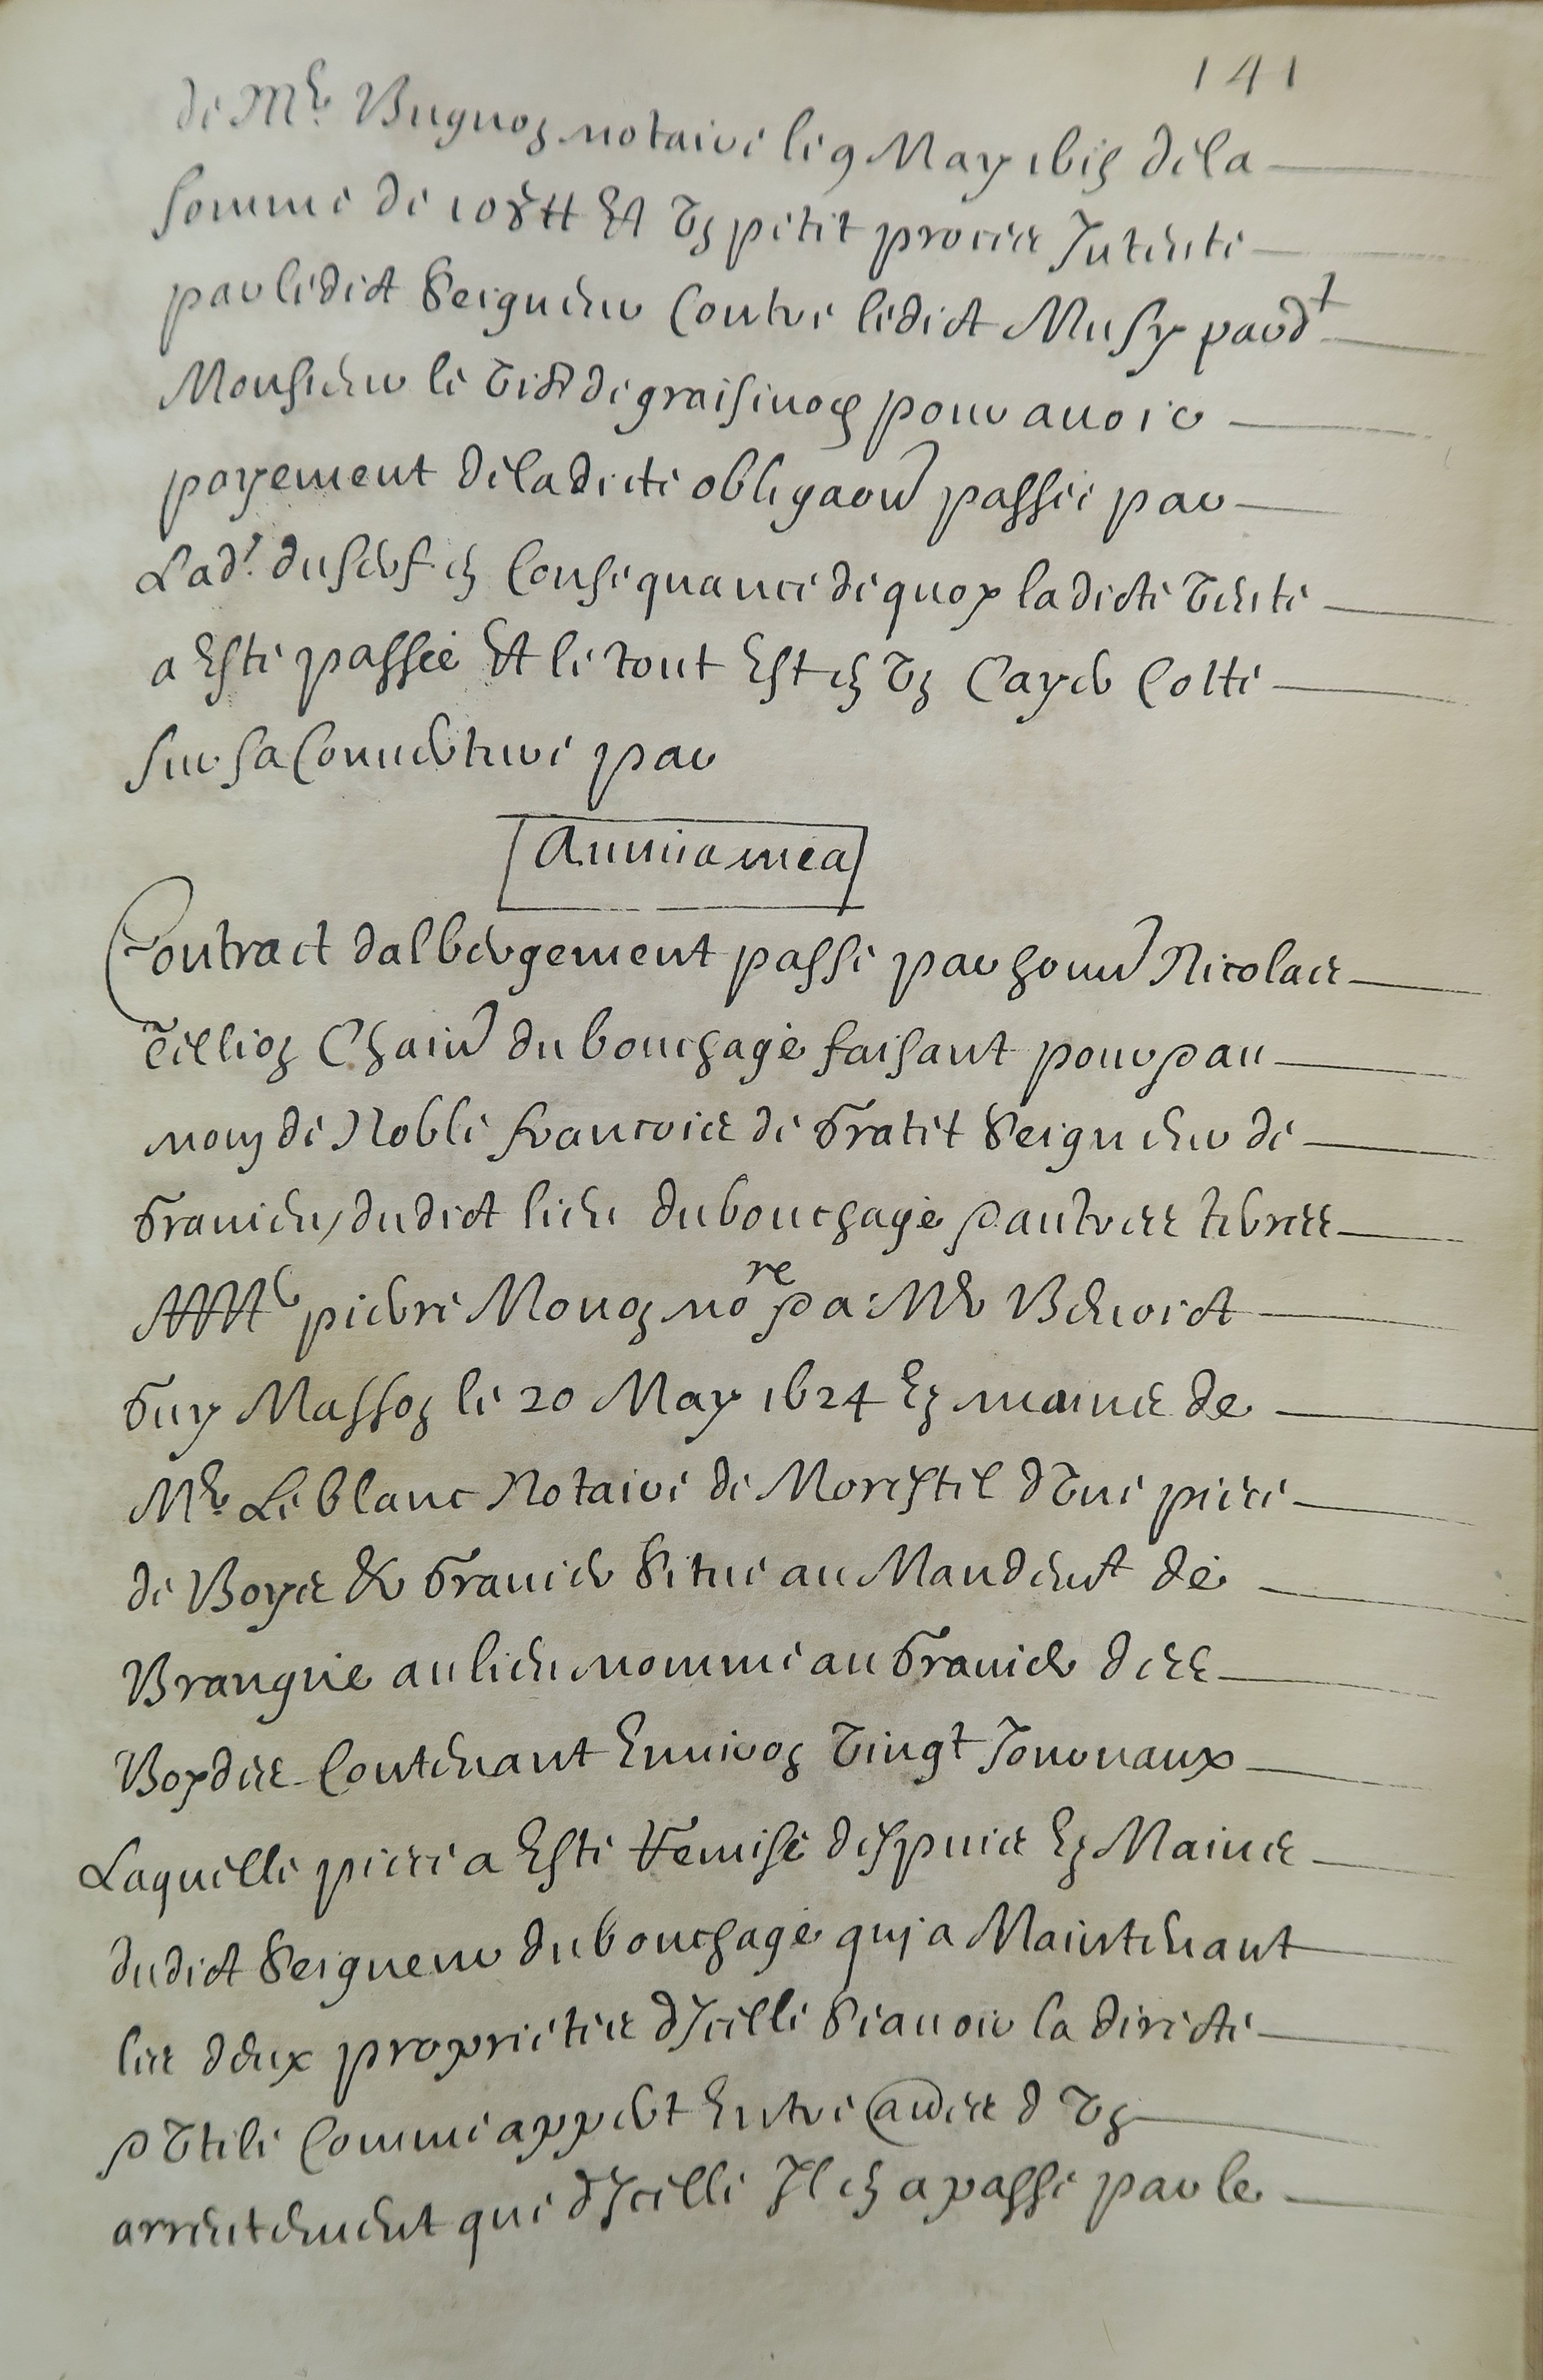 141
de Mr Bugnon notaire le 9 May 1615 dela
somme de 108 ₶ Et Un petit proces Intenté
par ledict Seigneur Contre ledict Musy pardt
Monsieur le Vibt de graisivod pour avoir
payement deladicte obligaon passée par
Lad. du serf en Consequance dequoy ladicte Vente
a Esté passée Et le tout Est en Un Cayer Cotté
sur sa Couverture par
Anima mea
Contract dalbergement passé par honn Nicolas
Tillion Chain du bouchage faisant pour & au
nom de Noble francois de Gratet Seigneur de
Granieu, dudict lieu du bouchage & autres terres
A Me pierre Mouon nore & a Me Benoict
Guy Masson le 20 May 1624 Es mains de
Me Leblanc Notaire de Morestel dUne piece
de Boys & Gravier Situe au Mandemt de
Brangue au lieu nommé au Gravier des
Boydes Contenant Environ Vingt Journaux
Laquelle piece a Esté Remise despuis Es Mains
dudict Seigneur du bouchage qui a Maintenant
les deux proprietes dIcelle Scavoir la directe
& Utile Comme appert Entre aues dUn
arrentement que dIcelle Il en a passé par le